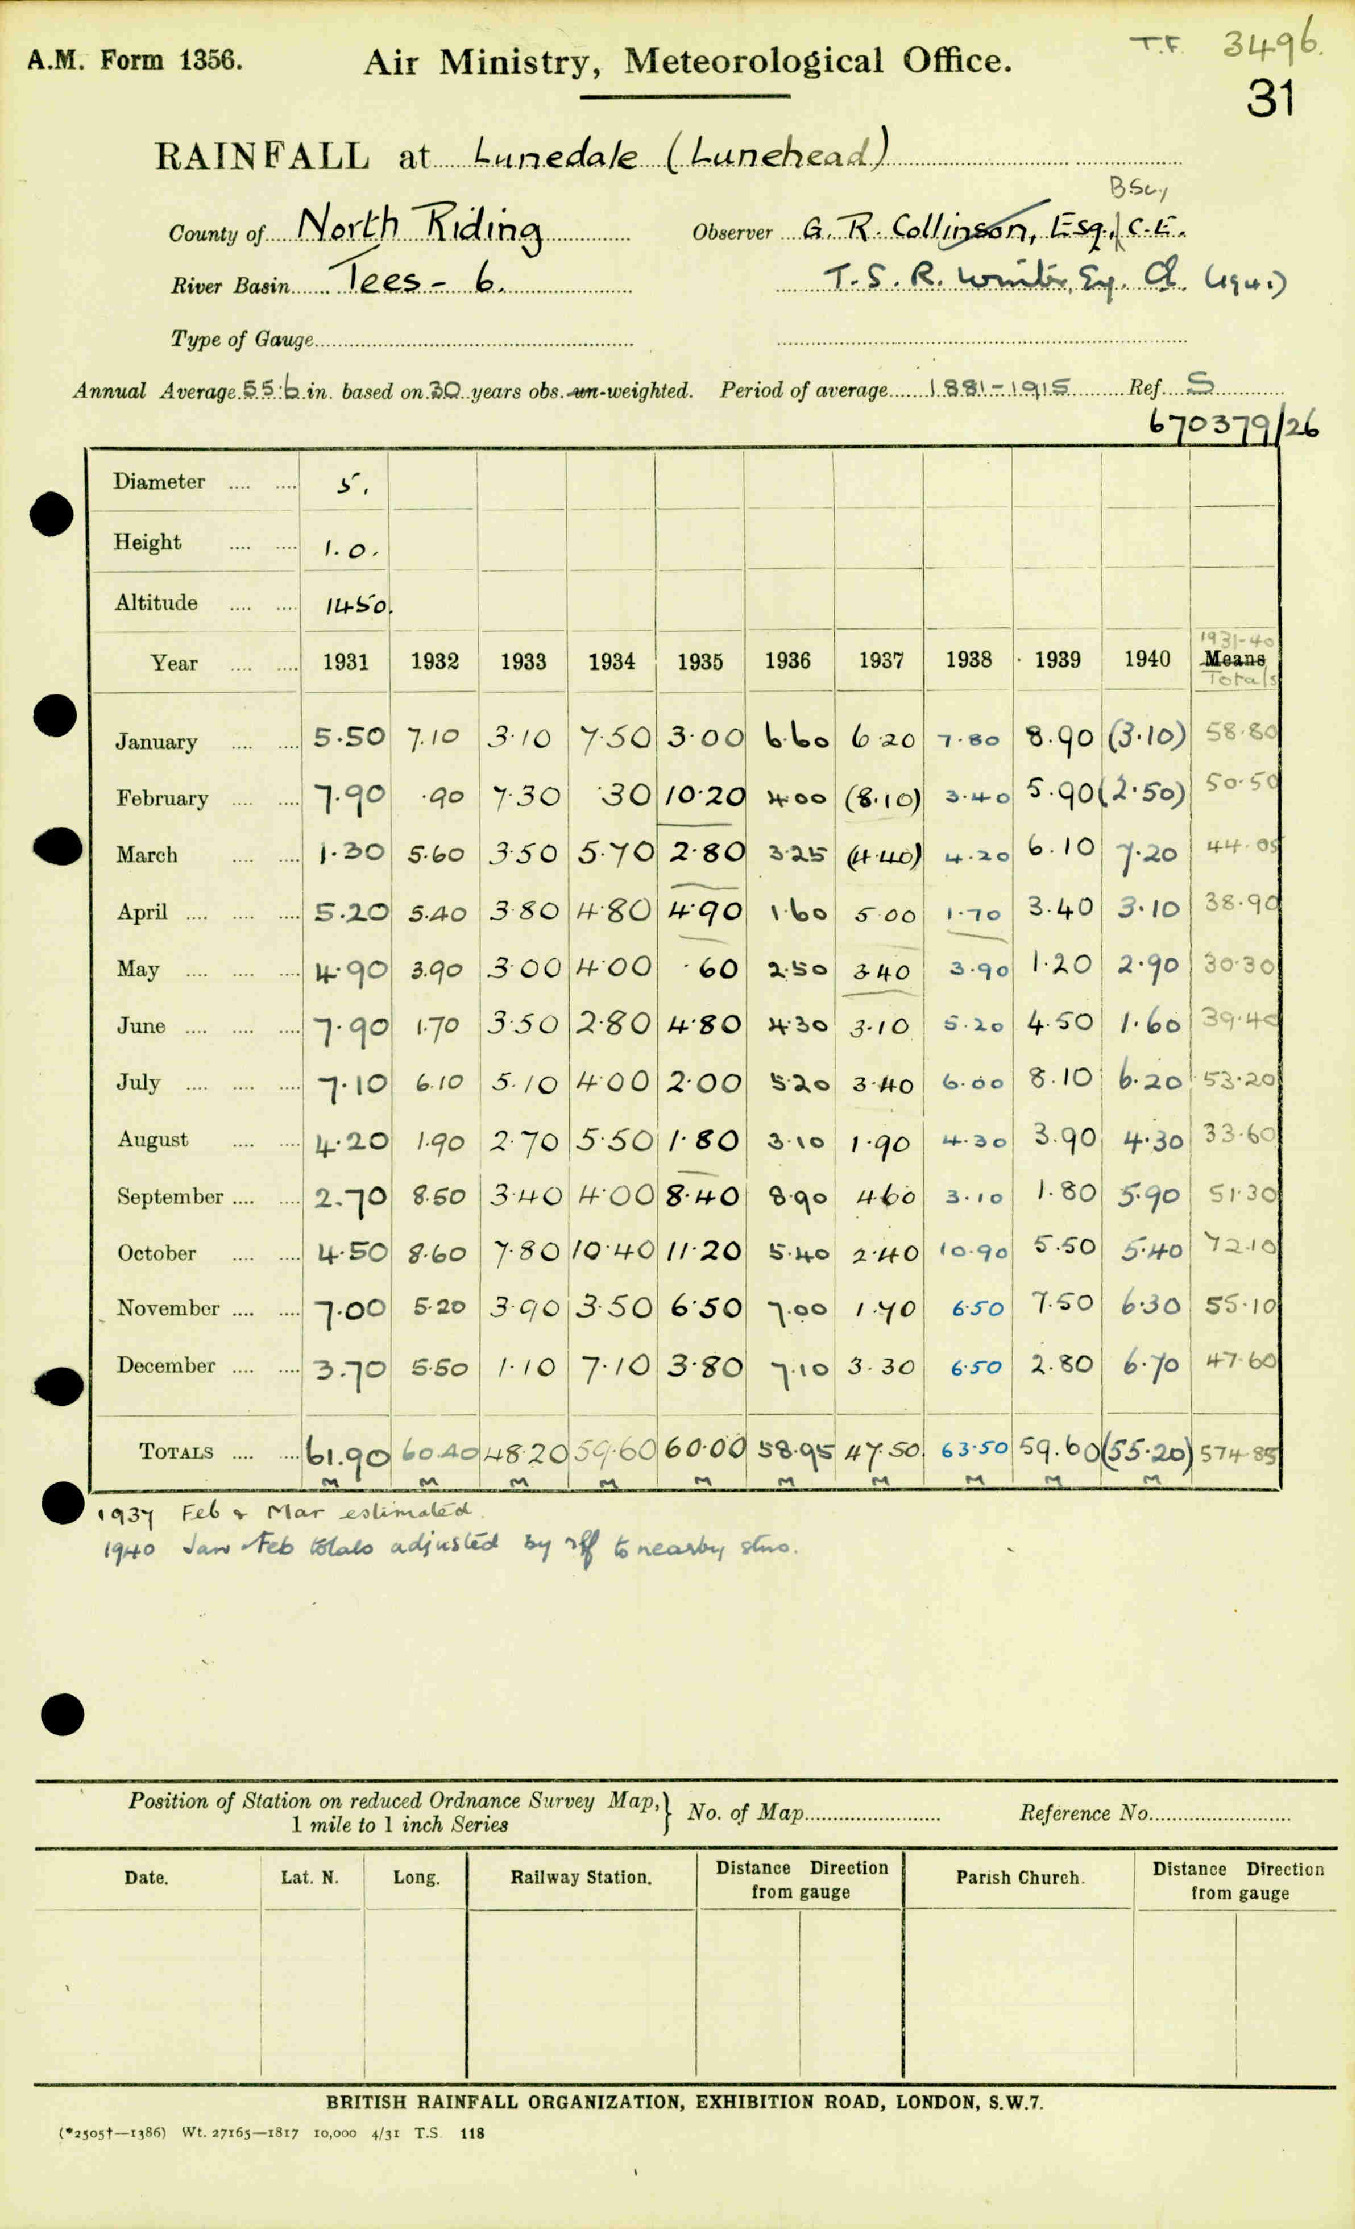 T.F. 3496.
A.M. Form 1356. Air Ministry, Meteorological Office.
31
RAINFALL at Lunedale (Lunehead)
B.Sc.,
County of North Riding Observer G. R. Collinson, Esq., C.E.
River Basin Tees - 6. T. S. R. Winter, Esq. (1941)
Type of Gauge
Annual Average 55.6 in. based on 30 years obs. un-weighted. Period of average 1881-1915 Ref. S
670379/26
Diameter 5.
Height 1.0.
Altitude 1450.
1931-40
Year 1931 1932 1933 1934 1935 1936 1937 1938 1939 1940 Means
Totals
January 5.50 7.10 3.10 7.50 3.00 6.60 6.20 7.80 8.90 (3.10) 58.80
February 7.90 .90 7.30 .30 10.20 4.00 (8.10) 3.40 5.90 (2.50) 50.50
March 1.30 5.60 3.50 5.70 2.80 3.25 (4.40) 4.20 6.10 7.20 44.05
April 5.20 5.40 3.80 4.80 4.90 1.60 5.00 1.70 3.40 3.10 38.90
May 4.90 3.90 3.00 4.00 .60 2.50 3.40 3.90 1.20 2.90 30.30
June 7.90 1.70 3.50 2.80 4.80 4.30 3.10 5.20 4.50 1.60 39.40
July 7.10 6.10 5.10 4.00 2.00 5.20 3.40 6.00 8.10 6.20 53.20
August 4.20 1.90 2.70 5.50 1.80 3.10 1.90 4.30 3.90 4.30 33.60
September 2.70 8.50 3.40 4.00 8.40 8.90 4.60 3.10 1.80 5.90 51.30
October 4.50 8.60 7.80 10.40 11.20 5.40 2.40 10.90 5.50 5.40 72.10
November 7.00 5.20 3.90 3.50 6.50 7.00 1.70 6.50 7.50 6.30 55.10
December 3.70 5.50 1.10 7.10 3.80 7.10 3.30 6.50 2.80 6.70 47.60
TOTALS 61.90 60.40 48.20 59.60 60.00 58.95 47.50 63.50 59.60 (55.20) 574.85
M M M M M M M M M M
1937 Feb & Mar estimated.
1940 Jan & Feb totals adjusted by ref to nearby stns.
Position of Station on reduced Ordnance Survey Map,} No. of Map Reference No.
1 mile to 1 inch Series
Date. Lat. N. Long. Railway Station. Distance Direction from gauge Parish Church. Distance Direction from gauge
BRITISH RAINFALL ORGANIZATION, EXHIBITION ROAD, LONDON, S.W.7.
(*2505†—1386) Wt. 27165—1817 10,000 4/31 T.S. 118